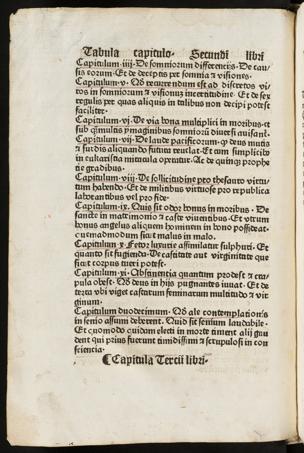 Tabula capitulo. Secundi libri
Capitulum .iiij. De somniorum differencijs. De cau-
sis eorum. Et de deceptis per somnia & visiones.
Capitulum .v. Quod recurrendum est ad discretos vi-
ros in somniorum & visionum incertitudine. Et de sex
regulis per quas aliquis in talibus non decipi potest
faciliter.
Capitulum .vj. De via bona multiplici in moribus. et
sub imaginibus somniorum diuersi
Capitulum .vij. De laude pacificorum. quod deus mutis
& surdis aliquando futura reuelat. Et cum simplicibus
in eukaristia miracula operatur. Ac de quinque prophe
tie gradibus.
Capitulum .viij. De sollicitudine pro thesauro virtu-
tum habendo. Et de militibus virtuose pro re publica
laborantibus vel pro fide.
Capitulum .ix. Quis sit odor bonus in moribus. De
sancte in matrimonio & caste viuentibus. Et vtrum
bonus angelus aliquem hominem in bono possideat.
quemadmodum facit malus in malo.
Capitulum .x. Fetor luxurie assimilatur sulphuri. Et
quanto sit fugienda. De castitate aut virginitate que
sicut corpus tueri potest.
Capitulum .xi. Abstinencia quantum prodest & cra-
pula obest. Quod deus in hijs pugnantes iuuat. Et de
terra vbi viget castarum feminarum multitudo & vir
ginum.
Capitulum duodecimum. Quod ale contemplationis
in senio assumi deberent. Quid sit senium laudabile.
Et quomodo quidam electi in morte timent alij gau
dent qui prius fuerunt timidissimi & scrupulosi in con
sciencia.
Capitula Tercii libri.